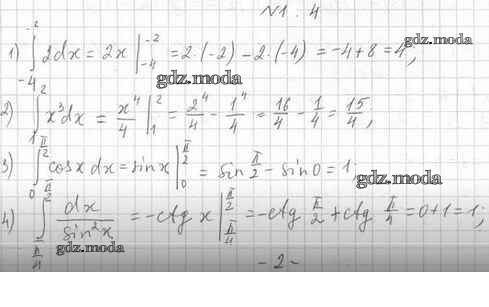 №1. 4
1) ∫₋₄⁻² 2dx = 2x |₋₄⁻² = 2·(-2) - 2·(-4) = -4+8 = 4;
gdz.moda
gdz.moda
2) ∫₁² x³dx = x⁴/4 |₁² = 2⁴/4 - 1⁴/4 = 16/4 - 1/4 = 15/4;
3) ∫₀^(π/2) cosx dx = sinx |₀^(π/2) = sin π/2 - sin0 = 1;
gdz.moda
4) ∫_(π/4)^(π/2) dx/sin²x = -ctg x |_(π/4)^(π/2) = -ctg π/2 + ctg π/4 = 0+1 = 1;
gdz.moda
- 2 -